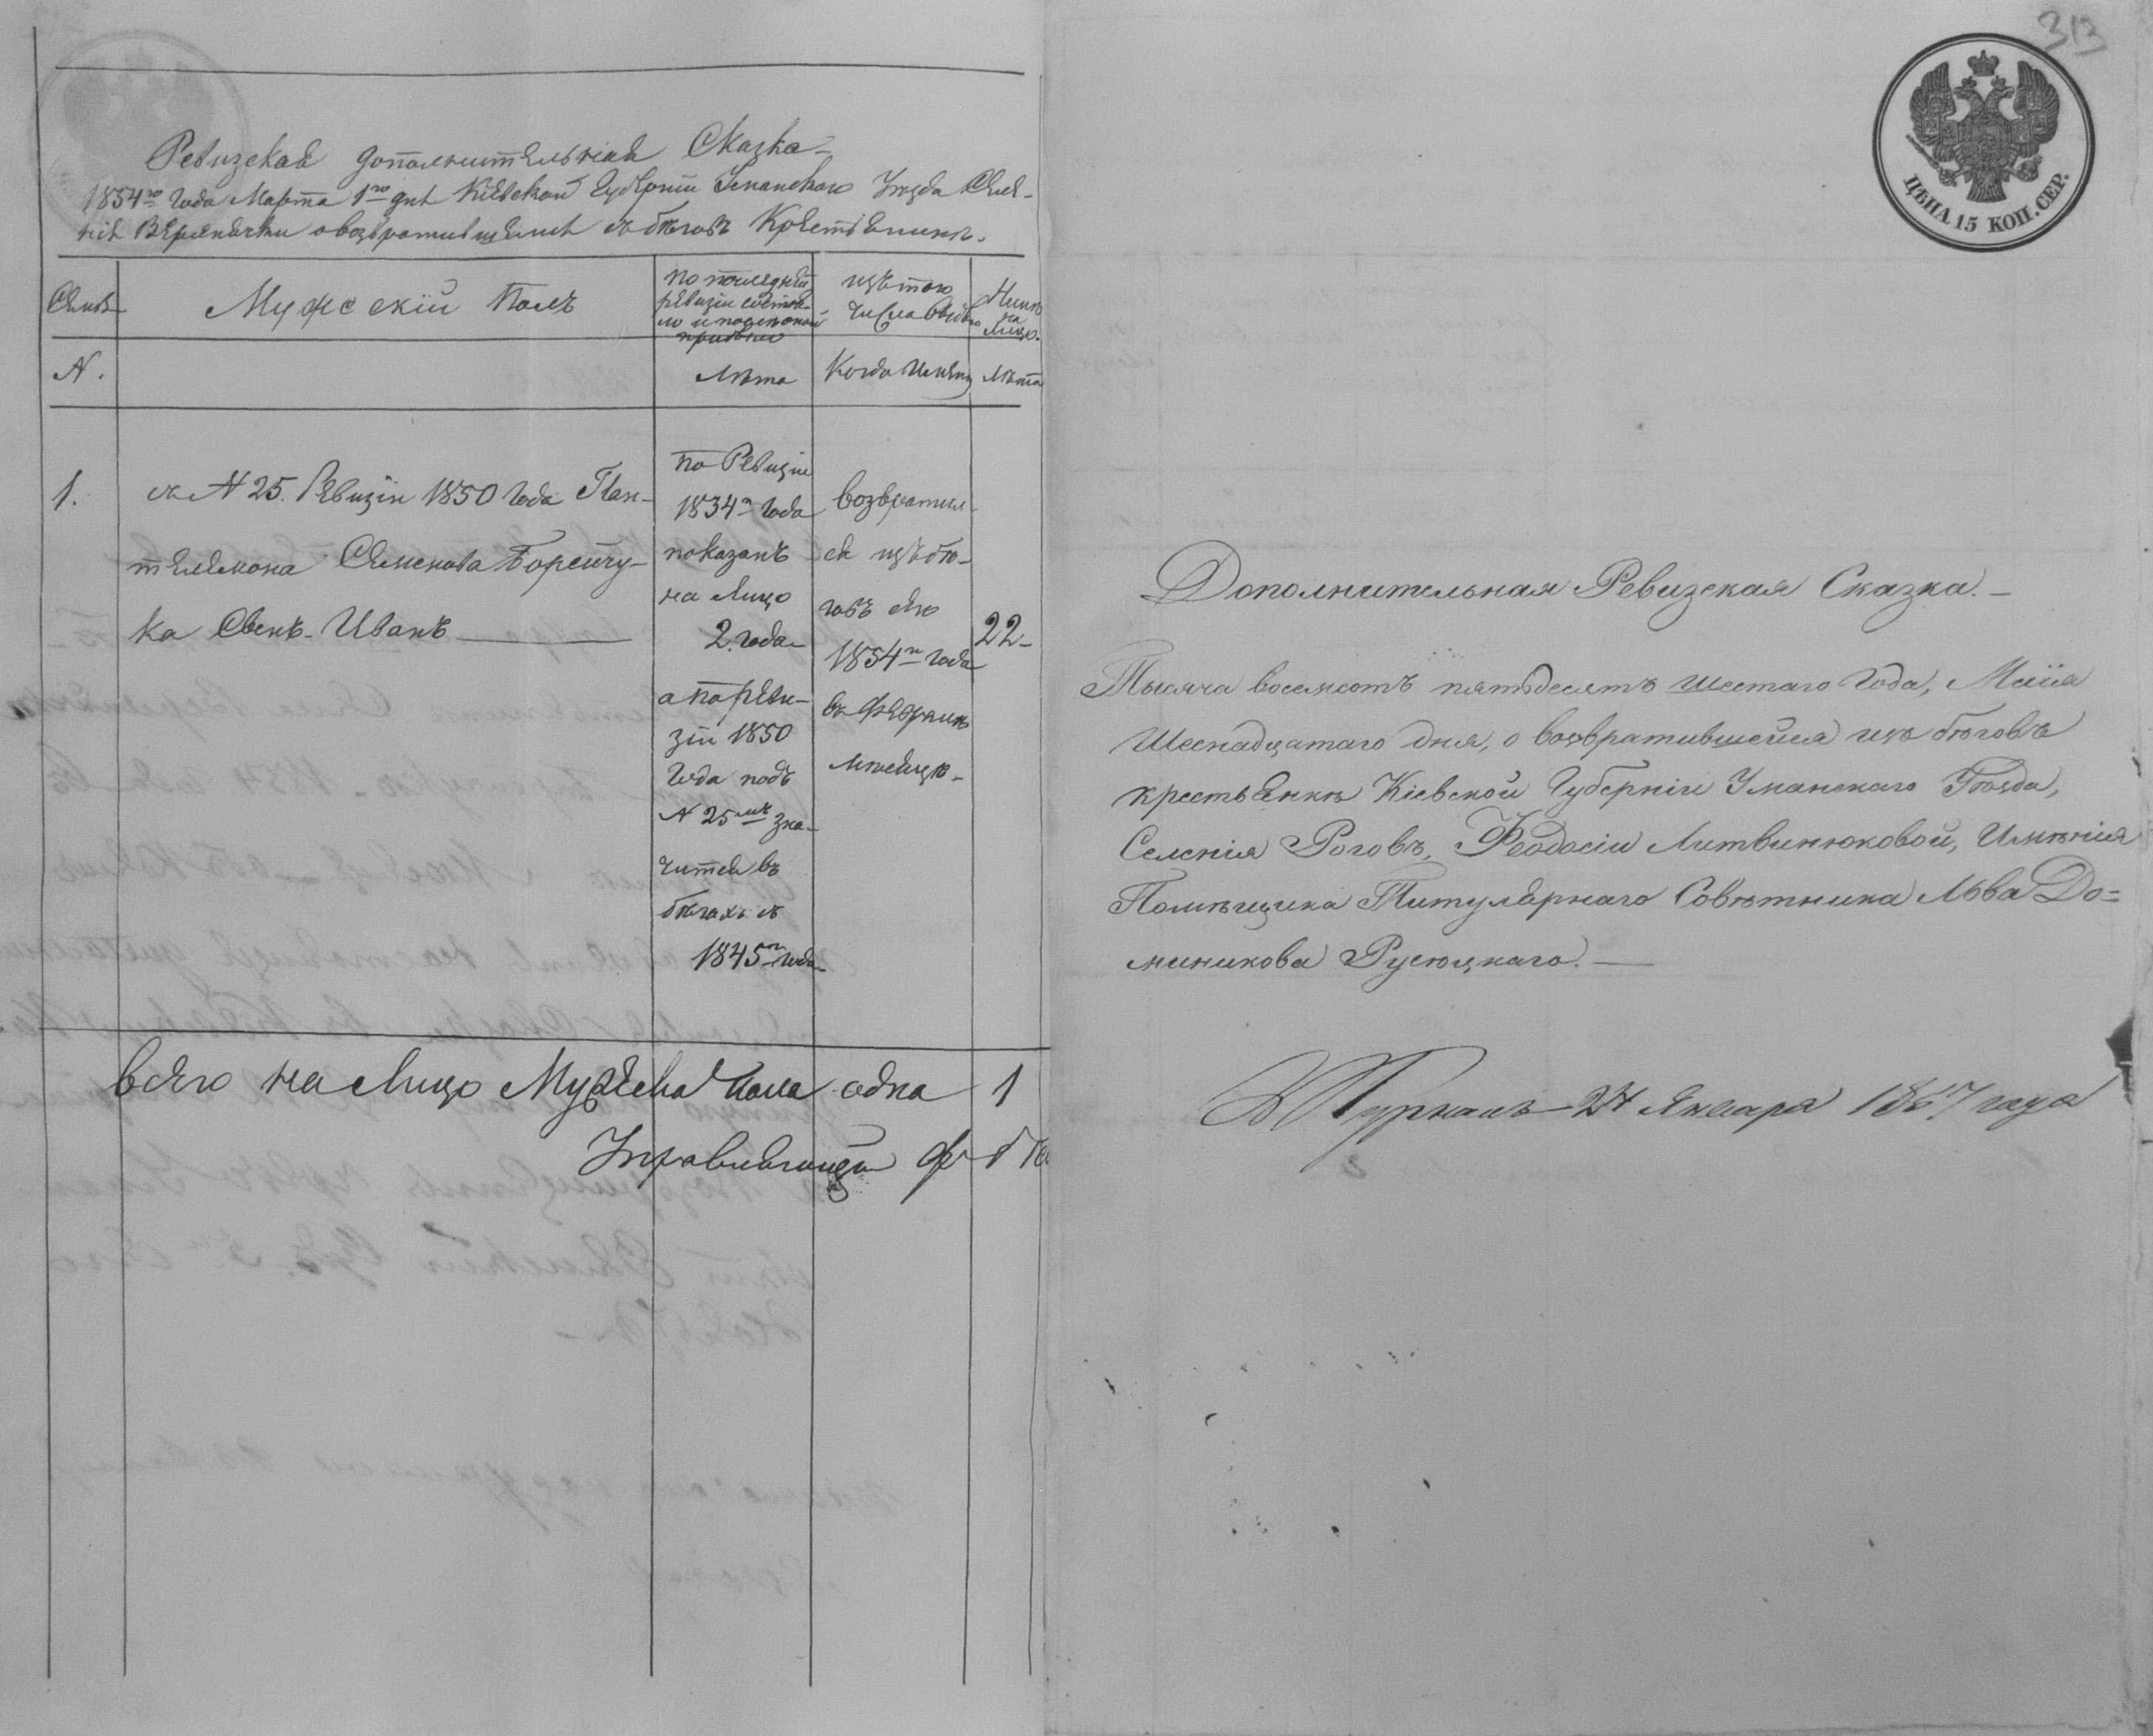 Ревизская дополнительная Сказка
1854го Года Марта 1го дня Кіевской Губерніи Уманскаго Уѣзда Селе-
нія Верхнячки о возвратившемся съ бѣговъ Крестьянинѣ.
Семья
Мужескій Полъ
по последней
ревизіи состоя-
ло и после оной
прибыло
изъ того
числа выбыло
Нынѣ
на
лицо.
N.
Лѣта
Когда именно
Лѣта
1.
съ N 25. Ревизіи 1850 Года Пан-
телемона Семенова Борейчу-
ка Сынъ Иванъ
по Ревизіи
1834го Года
показанъ
на лицо
2. года
а по реви-
зіи 1850
Года подъ
N 25мъ зна-
чится въ
бѣгахъ съ
1845го года
возвратил-
ся изъ бѣ-
говъ сего
1854го Года
въ Февралѣ
мѣсяцѣ
22
всего на лицо Мужеска пола одна 1
Управляющій
313
ЦѢНА 15 КОП. СЕР.
Дополнительная Ревизская Сказка.
Тысяча восемсотъ пятьдесятъ шестаго Года, Маія
Шеснадцатаго дня, о возвратившейся изъ бѣговъ
крестьянкѣ Кіевской Губерніи Уманскаго Уѣзда,
Селенія Роговъ, Феодосіи Литвинюковой, Имѣнія
Помѣщика Титулярнаго Совѣтника Льва До=
миникова Русецкаго.
24 Января 1857 года